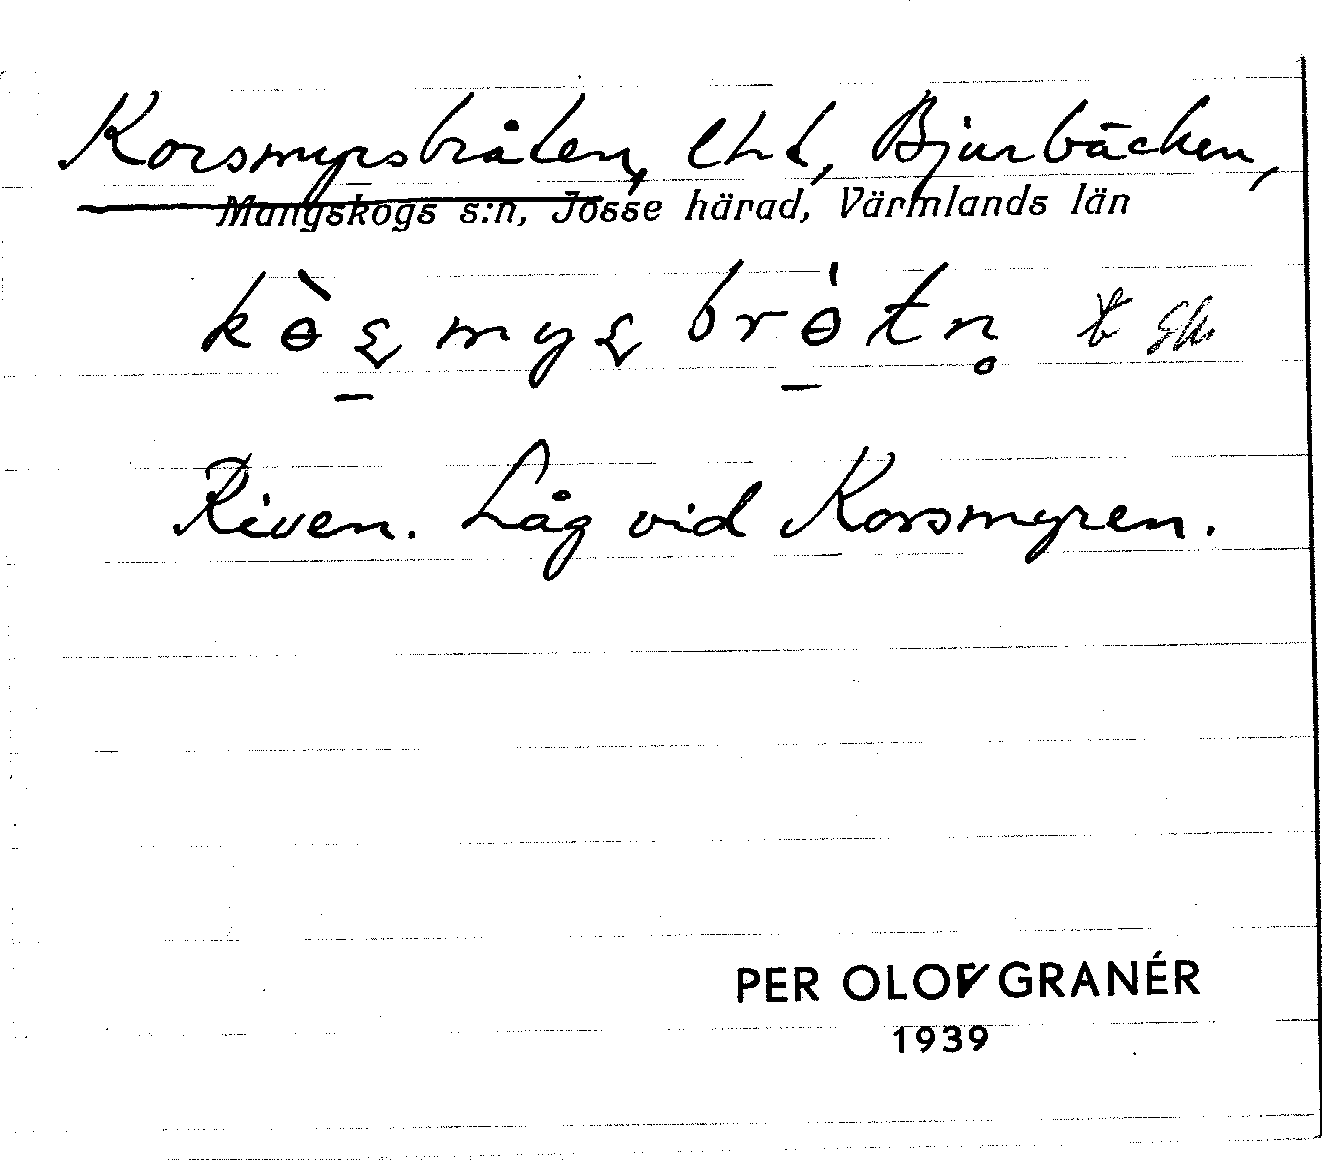 Korsmyrsbråten, lht, Bjurbäcken,
Mangskogs s:n, Jösse härad, Värmlands län
kɵ̀ʂmyʂbrɵ́tn̥
Riven. Låg vid Korsmyren.
PER OLOV GRANÉR
1939